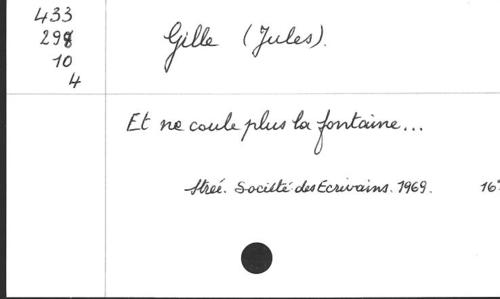 433
298
10
4
Gille (Jules).
Et ne coule plus la fontaine...
Strée. Société des Ecrivains. 1969. 16°